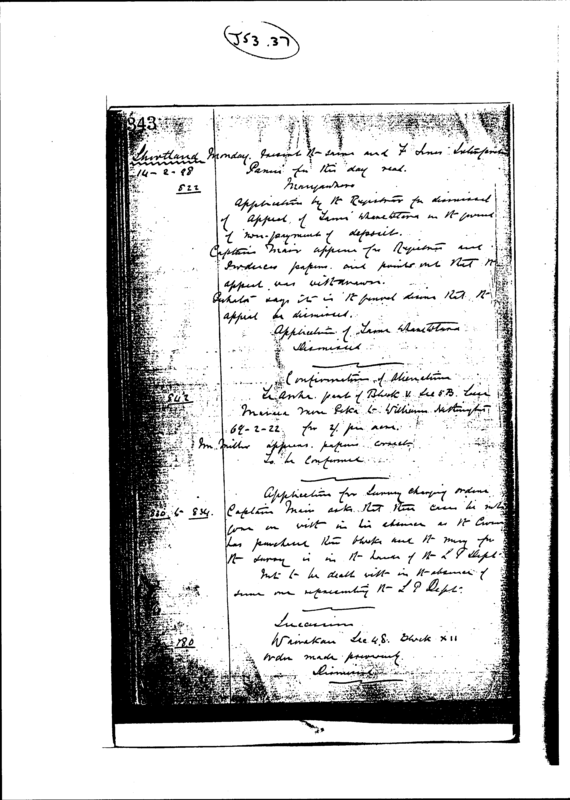 J53.37
343
Shortland Monday. Present the same and F Innes. Interpreter
14-2-98 Panui for this day read.
522
Application by the Registrar for dismissal
of Appeal of on the ground
of non-payment of deposit.
Captain Mair appears for Registrar and
produces papers and points out that the
appeal was withdrawn.
says it is the general desire that the
appeal be dismissed.
Application of
Dismissed
Confirmation of Alienation
542 part of Block V Sec 5B.
to William
69-2-22 for 2/. per acre.
Mr Miller appears. papers correct
To be confirmed
Application for Survey charging orders
6 834. Captain Mair asks that these cases be not
gone on with in his absence as the Crown
has purchased the blocks and the money for
the survey is in the hands of the L P Dept.
Not to be dealt with in the absence of
some one representing the L P Dept.
Succession
180 Sec 48. Block XII
order made previously
Dismissed